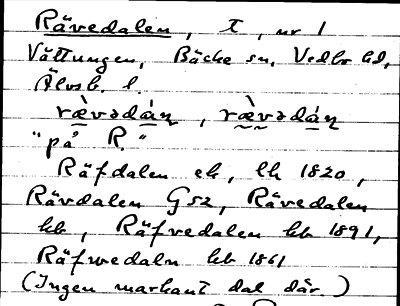 Rävedalen, T, nr 1
Vättungen, Bäcke sn, Vedbo hd,
Älvsb. l.
rævədáṇ, rævədáṇ
"på R."
Räfdalen ek, lk 1820,
Rävdalen G52, Rävedalen
kb, Räfvedalen kb 1891,
Räfwedaln kb 1861
(Ingen markant dal där)